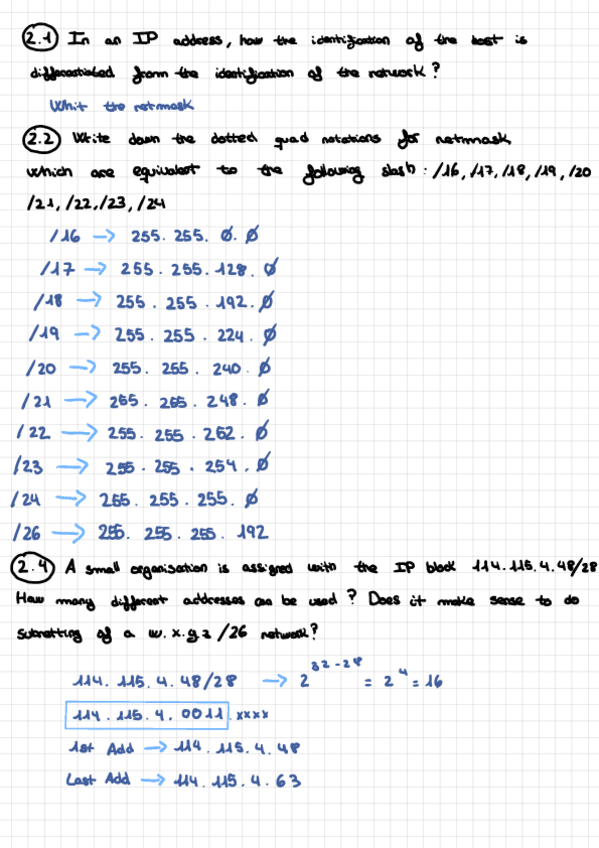 2.1 In an IP address, how the identification of the host is
differentiated fromm the identification of the network?
Whit the netmask
2.2 Write down the dotted quad notations for netmmask
which are equivalent to the following slash: /16, /17, /18, /19, /20
/21, /22, /23, /24
/16 → 255.255.0.0
/17 → 255.255.128.0
/18 → 255.255.192.0
/19 → 255.255.224.0
/20 → 255.255.240.0
/21 → 255.255.248.0
/22 → 255.255.252.0
/23 → 255.255.254.0
/24 → 255.255.255.0
/26 → 255.255.255.192
2.4 A small organisation is assigned with the IP block 114.115.4.48/28
How many different addresses can be used? Does it make sense to do
subnetting of a w.x.y.z/26 network?
114.115.4.48/28 → 2^32-28 = 2^4 = 16
114.115.4.0011.xxxx
1st Add → 114.115.4.48
Last Add → 114.115.4.63